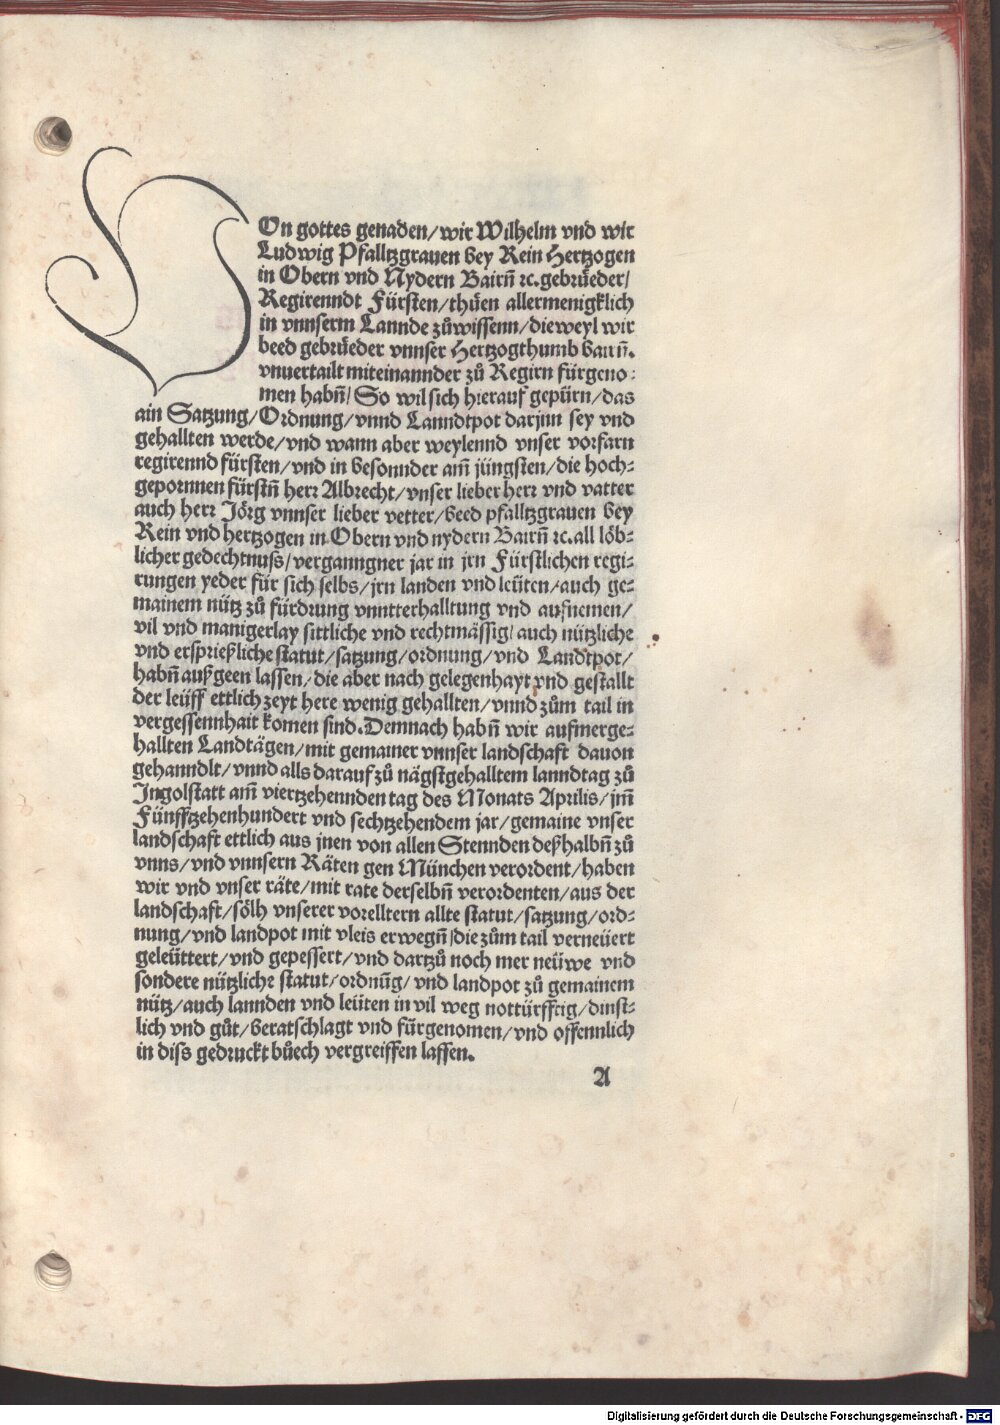 VOn gottes genaden/wir Wilhelm vnd wir
Ludwig Pfalltzgrauen bey Rein Hertzogen
in Obern vnd Nydern Bairñ ꝛc. gebrůeder/
Regirenndt Fürsten/thůen allermenigklich
in vnnserm Lannde zůwissenn/dieweyl wir
beed gebrůeder vnnser Hertzogthumb bairñ.
vnuertailt miteinannder zů Regirn fürgeno:
men habñ/So wil sich hierauf gepürn/das
ain Satzung/Ordnung/vnnd Lanndtpot darjnn sey vnd
gehallten werde/vnd wann aber weylennd vnser vorfarn
regirennd fürsten/vnd in besonnder am̃ jüngsten/die hoch⸗
gepornnen fürstñ herr Albrecht/vnser lieber herr vnd vatter
auch herr Jörg vnnser lieber vetter/beed pfalltzgrauen bey
Rein vnd hertzogen in Obern vnd nydern Bairñ ꝛc. all löb⸗
licher gedechtnuss/verganngner jar in jrn Fürstlichen regi⸗
rungen yeder für sich selbs/jrn landen vnd leüten/auch ge⸗
mainem nütz zů fürdrung vnntterhalltung vnd aufnemen/
vil vnd manigerlay sittliche vnd rechtmässig/auch nützliche
vnd ersprießliche statut/satzung/ordnung/vnd Landtpot/
habñ außgeen lassen/die aber nach gelegenhayt vnd gestallt
der leüff ettlich zeyt here wenig gehallten/vnnd zům tail in
vergessennhait komen sind. Demnach habñ wir aufmerge⸗
hallten Landtägen/mit gemainer vnnser landschaft dauon
gehanndlt/vnnd alls darauf zů nägstgehalltem lanndtag zů
Jngolstatt am̃ viertzehennden tag des Monats Aprilis/jm̃
Fünfftzehenhundert vnd sechtzehendem jar/gemaine vnser
landschaft ettlich aus jnen von allen Stennden deßhalbñ zů
vnns/vnd vnnsern Räten gen München verordent/haben
wir vnd vnser räte/mit rate derselbñ verordenten/aus der
landschaft/sölh vnserer vorelltern allte statut/satzung/ord⸗
nung/vnd landpot mit vleis erwegñ/die zům tail verneüert
geleüttert/vnd gepessert/vnd dartzů noch mer neüwe vnd
sondere nützliche statut/ordnũg/vnd landpot zů gemainem
nütz/auch lannden vnd leüten in vil weg nottürfftig/dinst⸗
lich vnd gůt/beratschlagt vnd fürgenomen/vnd offennlich
in diss gedruckt bůech vergreiffen lassen.
A
Digitalisierung gefördert durch die Deutsche Forschungsgemeinschaft - DFG